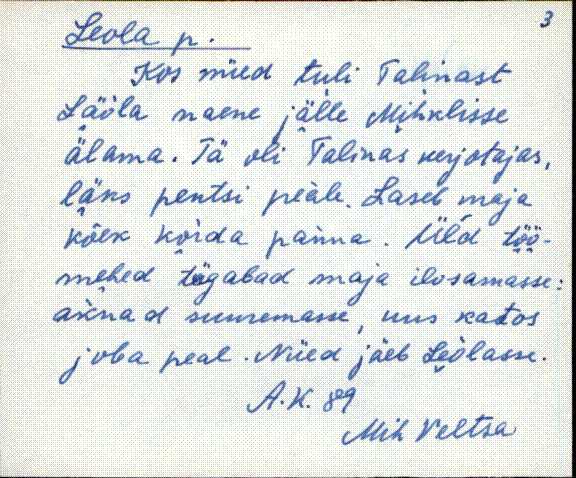 3
Leola p.
Kos nüed tuli Talinast
Läöla naene jälle Mihklisse
älama. Tä oli Talinas kerjotajas,
läks pentsi peäle. Laseb maja
kõek korda panna. Üld töö-
mehed tögabad maja ilosamasse:
aknad suuremasse, uus katos
joba peal. Nüed jäeb Leölasse.
A.K. 89
Mih Veltsa